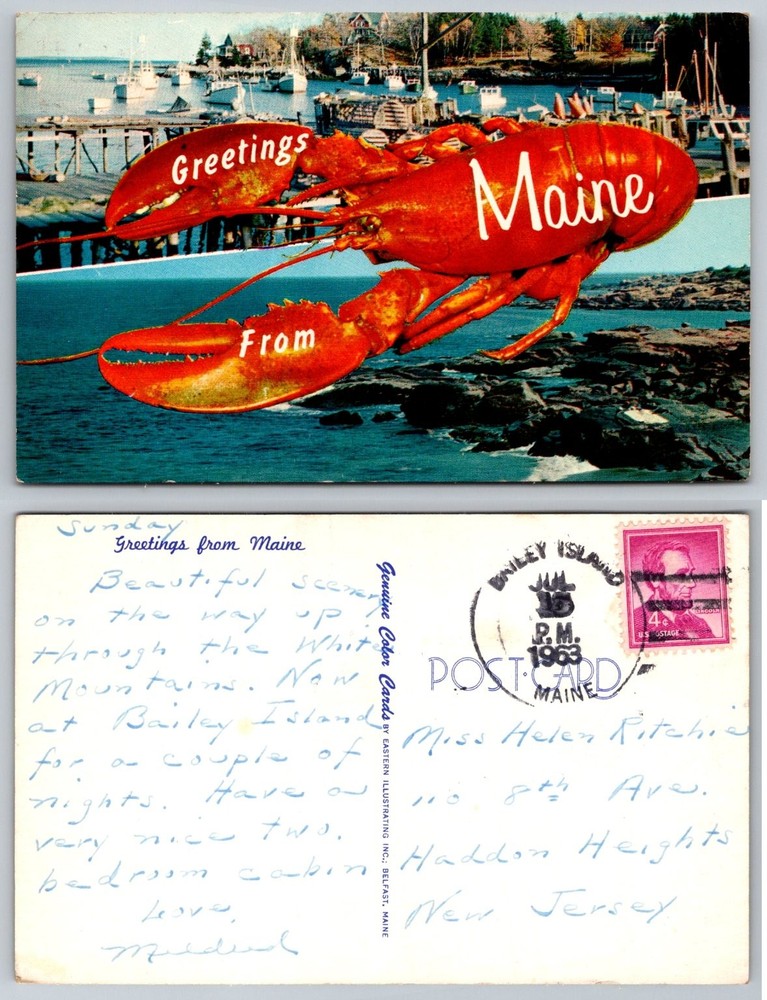 Greetings
From
Maine
Sunday
Greetings from Maine
Beautiful scenery
on the way up
through the White
Mountains. Now
at Bailey Island
for a couple of
nights. Have a
very nice two.
bedroom cabin
Love,
Mildred
Genuine Color Cards BY EASTERN ILLUSTRATING INC.; BELFAST, MAINE
BAILEY ISLAND
JUL
15
P.M.
1963
MAINE
LINCOLN
4¢
U.S. POSTAGE
POST CARD
Miss Helen Ritchie
110 8th Ave.
Haddon Heights
New Jersey